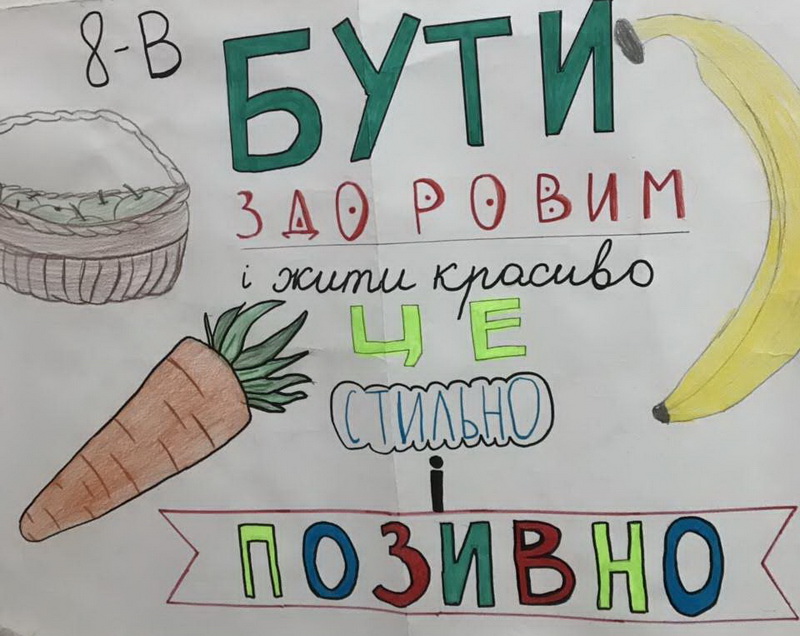 8-В
БУТИ
ЗДОРОВИМ
і жити красиво
ЦЕ
СТИЛЬНО
і
ПОЗИВНО